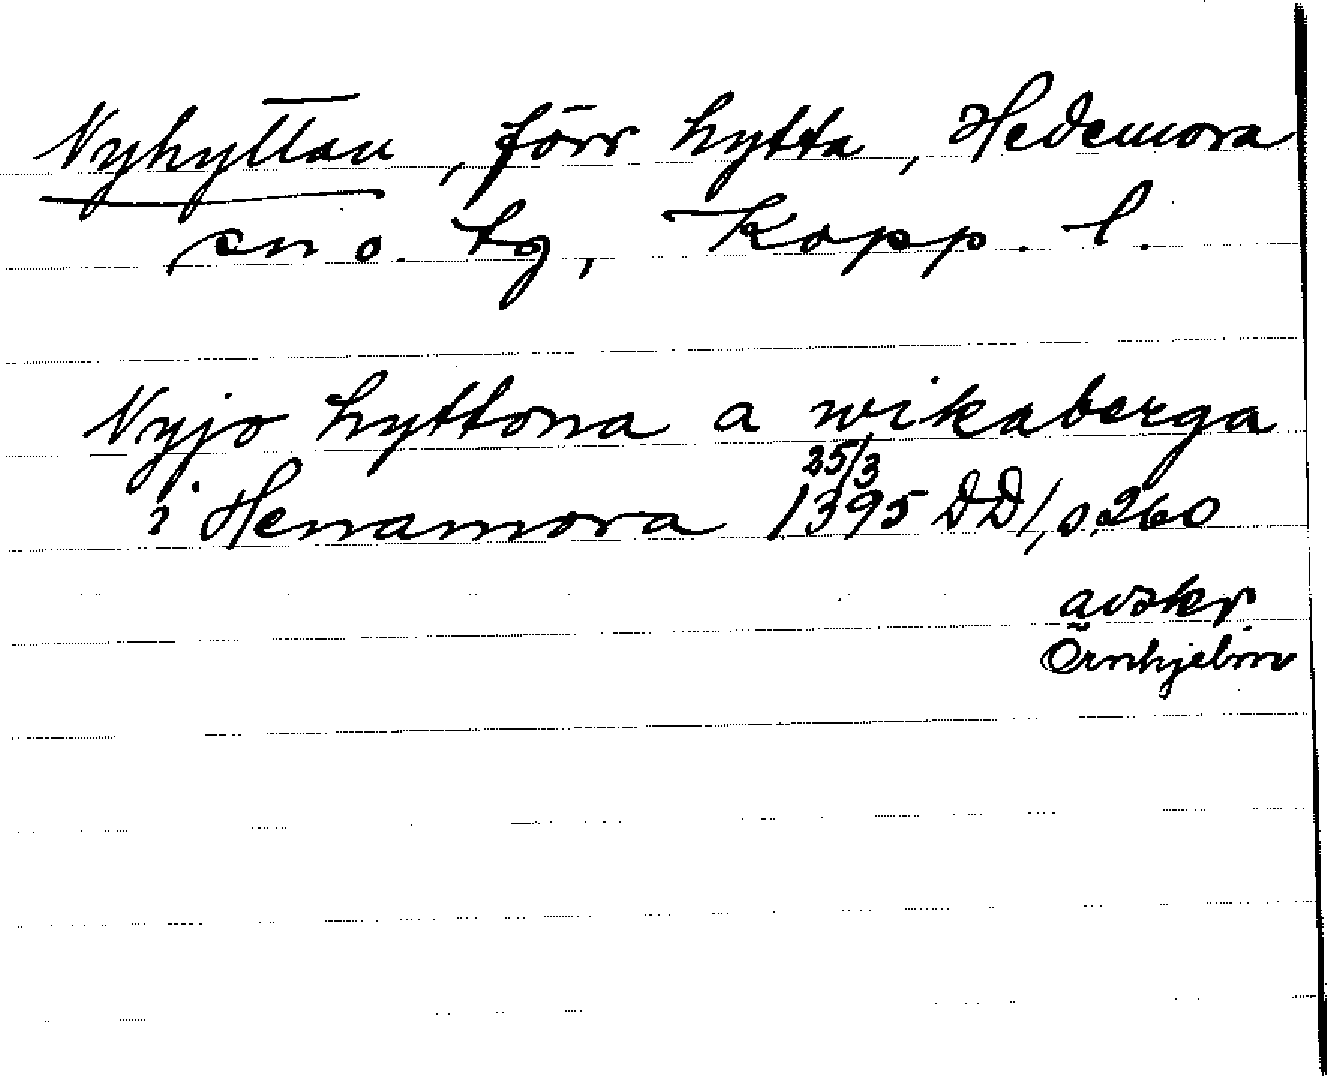 Nyhyttan, förr hytta, Hedemora
sn o. tg, Kopp. l.
Nyjo hyttona a wikaberga
i Henamora 25/3 1395 DD 1, s. 260
avskr
Örnhjelm